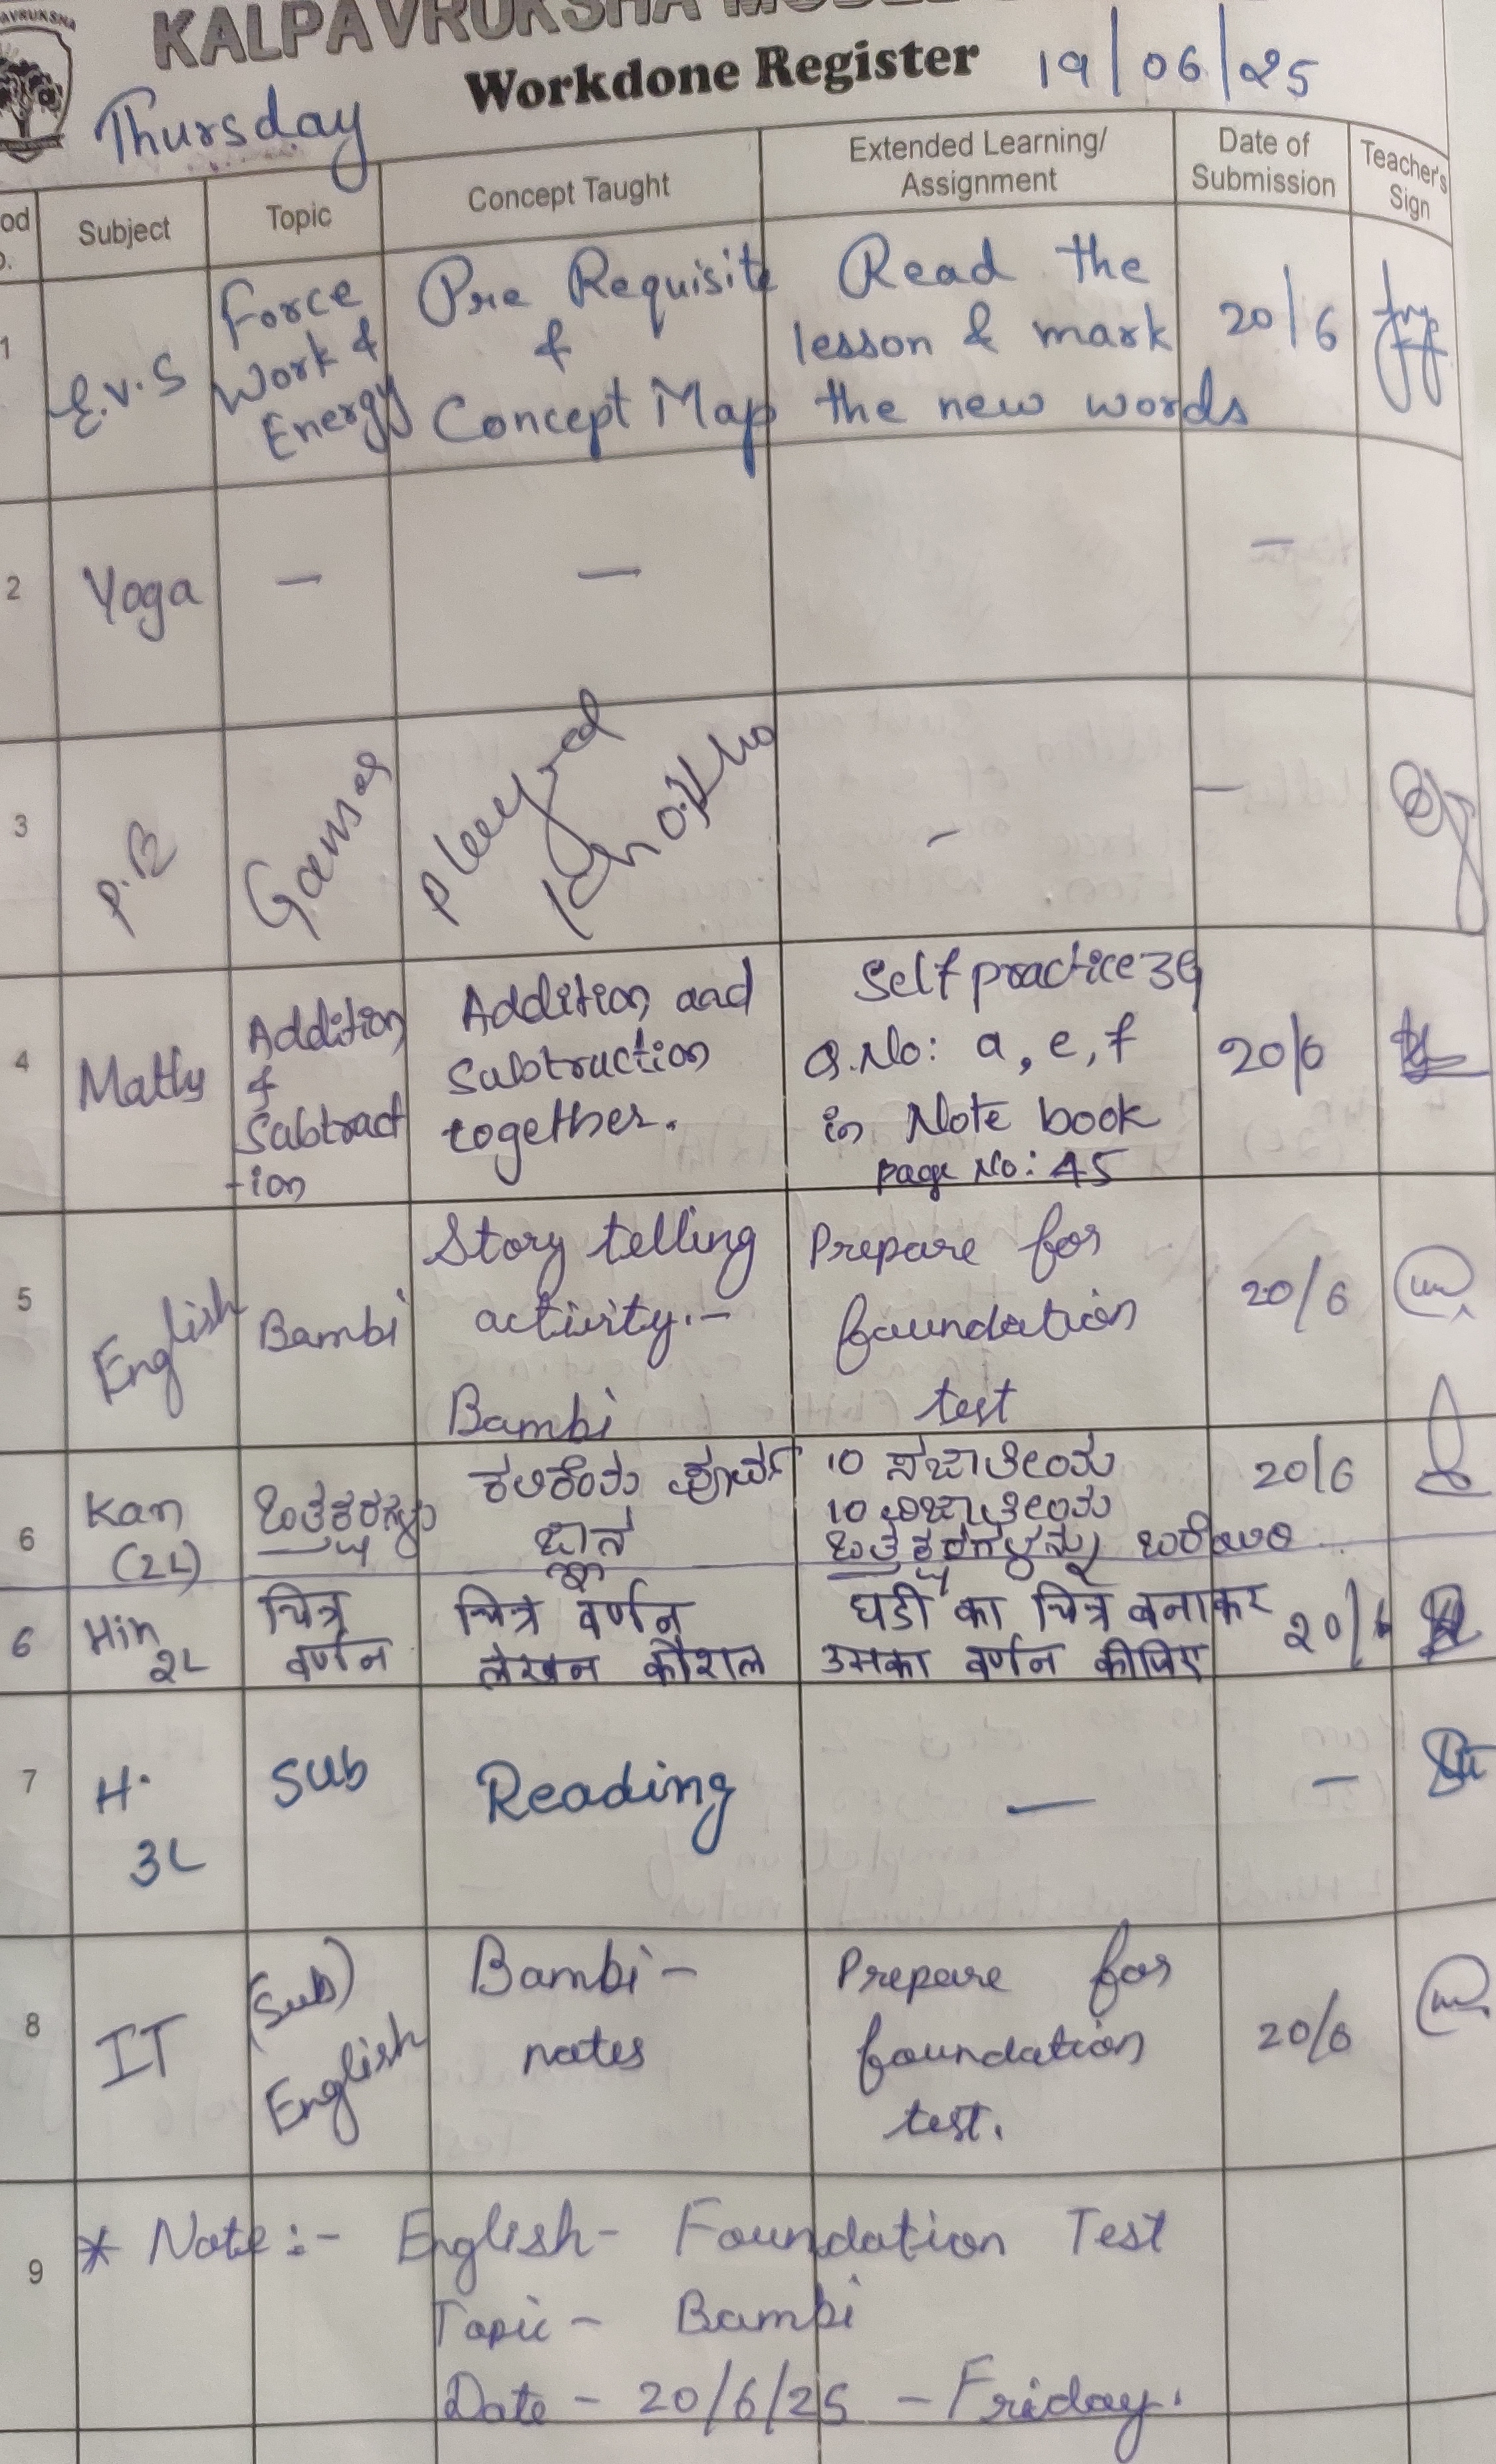 AVRUKSHA
KALPAVRUKSHA MODEL
Workdone Register 19/06/25
Thursday
Subject
Topic
Concept Taught
Extended Learning/
Assignment
Date of
Submission
Teacher's
Sign
1
E.V.S
Force
Work &
Energy
Pre Requisite
&
Concept Map
Read the
lesson & mark
the new words
20/6
2
Yoga
—
—
—
3
P.E
Games
Played
Kho Kho
-
—
4
Maths
Addition
&
Subtract
-ion
Addition and
Subtruction
together.
Self practice 3G
Q.No: a, e, f
in Note book
page No: 45
20/6
5
English
Bambi
Story telling
activity:-
Bambi
Prepare for
foundation
test
20/6
6
Kan
(2L)
ಒತ್ತಕ್ಷರಗಳು
ಕಲಿಕೆಯ ಪೂರ್ವ
ಜ್ಞಾನ
10 ಸಜಾತೀಯ
10 ವಿಜಾತೀಯ
ಒತ್ತಕ್ಷರಗಳನ್ನು ಬರೆಯಿರಿ
20/6
6
Hin
2L
चित्र
वर्णन
चित्र वर्णन
लेखन कौशल
घडी का चित्र बनाकर
उसका वर्णन कीजिए
20/6
7
H.
3L
Sub
Reading
—
—
8
IT
(Sub)
English
Bambi-
notes
Prepare for
foundation
test.
20/6
9
* Note:- English- Foundation Test
Topic - Bambi
Date - 20/6/25 - Friday.